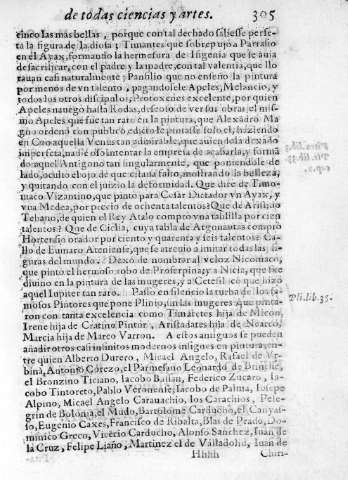 de todas ciencias y artes. 305
cinco las mas bellas, porque con tal dechado saliesse perfe-
ta la figura de la diosa; Timantes que sobrepujo a Parrasio
en el Ayax, formando la hermosura de Ifigenia que se auia
de sacrificar, con el padre y la madre, con tal valentia, que llo
rauan casi naturalmente; Panfilio que no enseño la pintura
por menos de vn talento, pagandosele Apeles, Melancio, y
todos los otros discipulos; Protoxenes excelente, por quien
Apeles nauegò hasta Rodas, desseoso de ver sus obras, el mis-
mo Apeles que fue tan raro en la pintura, que Alexādro Ma
gno ordenò con publico edicto le pintasse solo el, haziendo
en Coo aquella Venus tan admirable, que auiendola dexado
imperfeta, nadie osò intentar la empresa de acabarla, y forman
do aquel Antigono tan singularmente, que poniendole de
lado, ocultò el ojo de que estaua falto, mostrando la belleza,
y quitando con el juizio la deformidad. Que dirè de Timo-
maco Vizamino, que pintò para Cesar Dictador vn Ayax, y
vna Medea, por precio de ochenta talentos? Que de Aristido
Tebano, de quien el Rey Atalo comprò vna tablilla por cien
talentos? Que de Cidia, cuya tabla de Argonautas comprò
Hortensio orador por ciento y quarenta y seis talentos? Ca-
llo de Eumaco Ateniense, que se atreuio a imitar todas las fi-
guras del mundo. Dexo de nombrar al veloz Nicomaco,
que pintò el hermoso robo de Proserpina; a Nicia, que fue
diuino en la pintura de las mugeres; a Cetesiloco que hizo
aquel Iupiter tan raro. Passo en silencio la turba de los fa-
mosos Pintores que pone Plinio, en las mugeres que pinta-
ron con tanta excelencia como Timaretes hija de Micon,
Irene hija de Cratino Pintor, Aristadates hija de Nearco,
Marcia hija de Marco Varron. A estos antiguos se pueden
añadir otros casi infinitos modernos insignes en pintura, en-
tre quien Alberto Durero, Micael Angelo, Rafael de Vr-
bina, Antonio Corezo, el Parmesano, Leonardo de
el Bronzino Ticiano, Iacobo Bassan, Federico Zucaro, Ia-
cobo Tintoreto, Pablo Veronense, Iacobo de Palma, Iosepe
Alpino, Micael Angelo Carauachio, los Carachios, Pele-
grin de Bolonia, el Mudo, Bartolome Carducho,
Eugenio Caxes, Francisco de Ribalta, Blas de Prado, Do-
minico Greco, Vicencio Carducho, Alonso Sanchez, Iuan de
la Cruz, Felipe Liaño, Martinez el de Valladolid, Iuan de
Hhhh Chiri-
Pli. lib. 35.